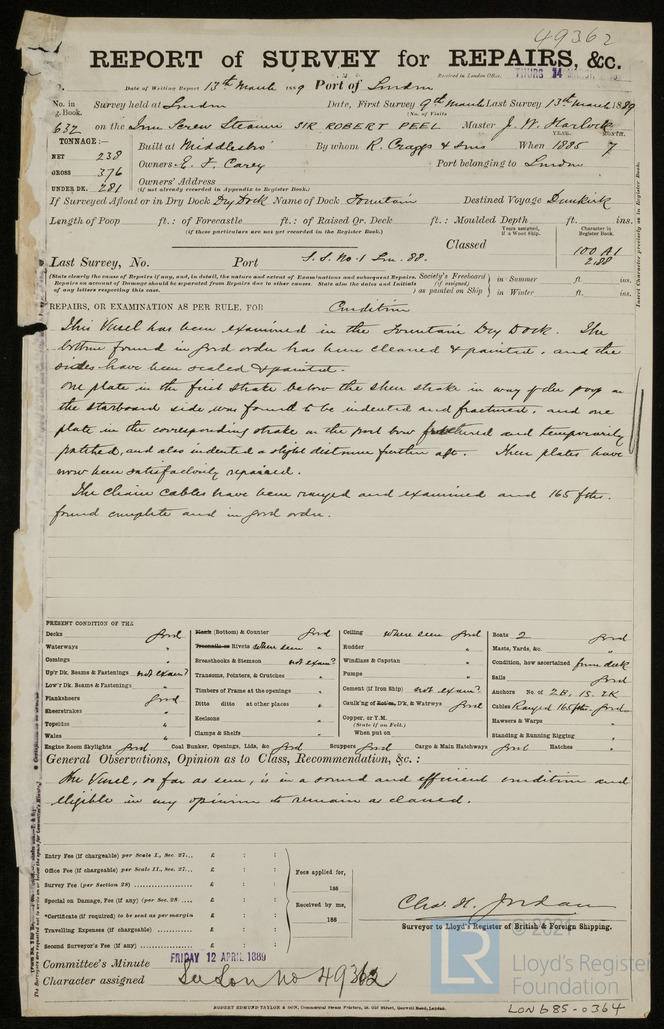 49362
REPORT of SURVEY for REPAIRS, &c.
Date of Writing Report 13th March 1889 Port of London
Received in London Office, THURS 14 MARCH
No. in Survey held at London Date, First Survey 9th March Last Survey 13th March 1889
g. Book. (No. of Visits
632 on the Iron Screw Steamer SIR ROBERT PEEL Master J. W. Harlock
TONNAGE:— YEAR. MONTH.
Built at Middlesbro' By whom R. Craggs & Sons When 1885 7
NET 238
GROSS 376 Owners E. J. Carey Port belonging to London
UNDER DK. 281 Owners' Address
(if not already recorded in Appendix to Register Book.)
If Surveyed Afloat or in Dry Dock Dry Dock Name of Dock Fountain Destined Voyage Dunkirk
Length of Poop ft.: of Forecastle ft.: of Raised Qr. Deck ft.: Moulded Depth ft. ins.
(if these particulars are not yet recorded in the Register Book.)
Years assigned, if a Wood Ship. Character in Register Book.
Classed 100 A1
2.88
Last Survey, No. Port S.S. No. 1 Lon. 88.
(State clearly the causes of Repairs if any, and, in detail, the nature and extent of Examinations and subsequent Repairs.
Repairs on account of Damage should be separated from Repairs due to other causes. State also the dates and Initials
of any letters respecting this case.
Society's Freeboard (if assigned) as painted on Ship
in Summer ft. ins.
in Winter ft. ins.
Insert Character precisely as in Register Book.
REPAIRS, OR EXAMINATION AS PER RULE, FOR Condition
This Vessel has been examined in the Fountain Dry Dock. The
bottom found in good order has been cleaned & painted, and the
sides have been scaled & painted.
One plate in the first strake below the sheer strake in way of the poop on
the starboard side, was found to be indented and fractured, and one
plate in the corresponding strake on the port bow fractured and temporarily
patched, and also indented a slight distance further aft. These plates have
now been satisfactorily repaired.
The chain cables have been ranged and examined and 165 fths.
found complete and in good order.
PRESENT CONDITION OF THE
Decks good
Waterways "
Comings "
Up'r Dk. Beams & Fastenings not exam?
Low'r Dk. Beams & Fastenings "
Planksheers good
Sheerstrakes "
Topsides "
Wales "
(Bottom) & Counter good
Rivets where seen "
Breasthooks & Stemson not exam?
Transoms, Pointers, & Crutches "
Timbers of Frame at the openings "
Ditto ditto at other places "
Keelsons "
Clamps & Shelfs "
Ceiling where seen good
Rudder "
Windlass & Capstan "
Pumps "
Cement (if Iron Ship) not exam?
Caulk'ng of Bot'm, D'k, & Watrways good
Copper, or Y.M.
(State if on Felt.)
When put on
Boats 2 good
Masts, Yards, &c. "
Condition, how ascertained from deck
Sails good
Anchors No. of 2B. 1S. 2K
Cables Ranged 165 fths. good
Hawsers & Warps "
Standing & Running Rigging "
Engine Room Skylights good Coal Bunker, Openings, Lids, &c. good Scuppers good Cargo & Main Hatchways good Hatches "
General Observations, Opinion as to Class, Recommendation, &c.:
The Vessel, so far as seen, is in a sound and efficient condition and
eligible in my opinion to remain as classed.
Entry Fee (if chargeable) per Scale I., Sec. 27... £ : :
Office Fee (if chargeable) per Scale II., Sec. 27... £ : :
Survey Fee (per Section 28) £ : :
Special on Damage, Fee (if any) (per Sec. 28 £ : :
*Certificate (if required) to be sent as per margin £ : :
Travelling Expenses (if chargeable) £ : :
Second Surveyor's Fee (if any) £ : :
Fees applied for,
188
Received by me,
188
Chas. H. Jordan
Surveyor to Lloyd's Register of British & Foreign Shipping.
Committee's Minute FRIDAY 12 APRIL 1889
Character assigned See Lon No 49362
© 2021
LR
Lloyd's Register
Foundation
ROBERT EDMUND TAYLOR & SON, Commercial Steam Printers, 19, Old Street, Goswell Road, London.
LON 685-0364